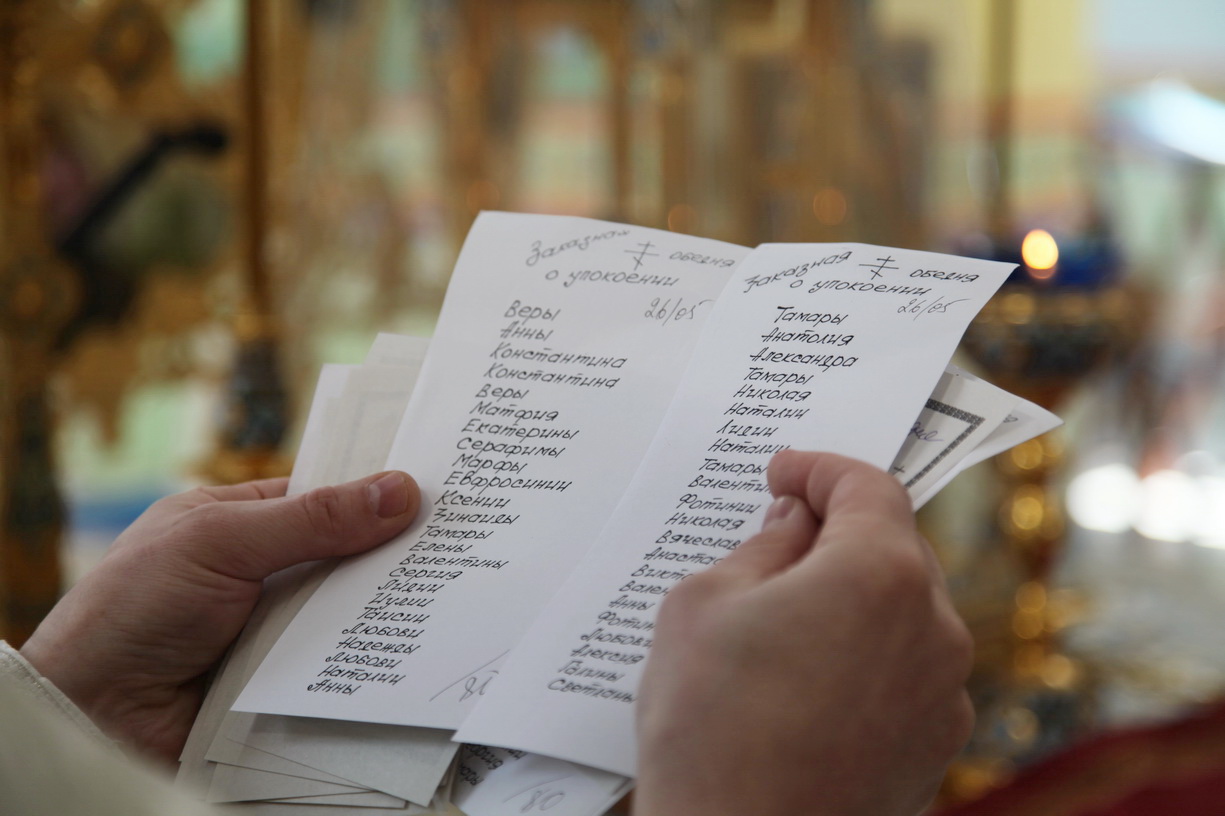 Заказная ☦ обедня
о упокоении
26/05
Веры
Анны
Константина
Константина
Веры
Матфия
Екатерины
Серафимы
Марфы
Евфросинии
Ксении
Зинаиды
Тамары
Елены
Валентины
Сергия
Лидии
Иулии
Таисии
Любови
Надежды
Любови
Наталии
Анны
Заказная ☦ обедня
о упокоении
26/05
Тамары
Анатолия
Александра
Тамары
Николая
Наталии
Лидии
Наталии
Тамары
Валентин
Фотинии
Николая
Вячеслав
Анастас
Викто
Вален
Анны
Фотин
Любови
Алексия
Галины
Светланы
/80